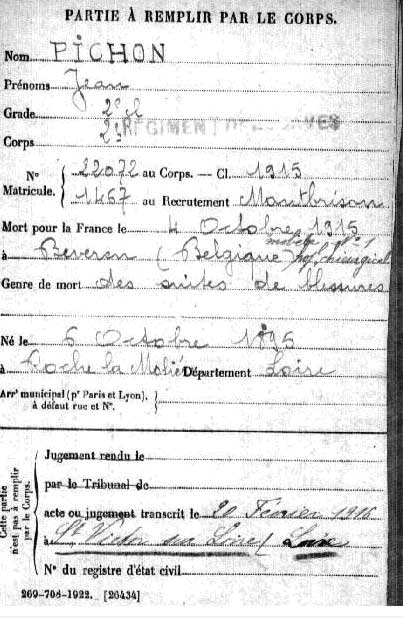 PARTIE À REMPLIR PAR LE CORPS.
Nom PICHON
Prénoms Jean
Grade 2e cl
Corps 2e RÉGIMENT DE ZOUAVES
N° Matricule. { 22072 au Corps. — Cl. 1915
1467 au Recrutement Montbrison
Mort pour la France le 4 Octobre 1915
à Beveren (Belgique) hop. chirurgical mobile N° 1
Genre de mort des suites de blessures
Né le 6 Octobre 1895
à Roche la Molière Département Loire
Arrt municipal (pr Paris et Lyon), à défaut rue et N°. {
Cette partie n'est pas à remplir par le Corps.
Jugement rendu le
par le Tribunal de
acte ou jugement transcrit le 20 Février 1916
à St Victor sur Loire (Loire
N° du registre d'état civil
269-708-1922. [26434]